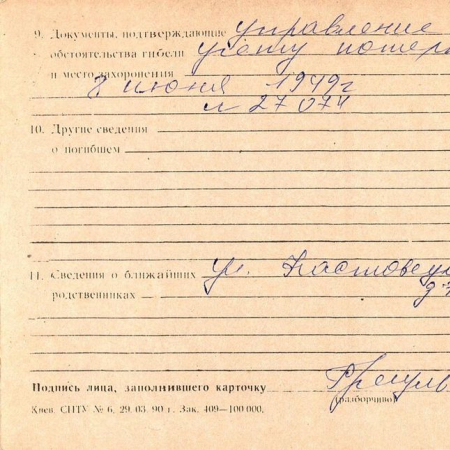 9. Документы, подтверждающие управление
обстоятельства гибели учёту потерь
и место захоронения
8 июня 1949г
№ 27074
10. Другие сведения
о погибшем
11. Сведения о ближайших ул.
родственниках
Подпись лица, заполнившего карточку
(разборчиво)
Киев. СПТУ № 6. 29. 03. 90 г. Зак. 409—100.000.